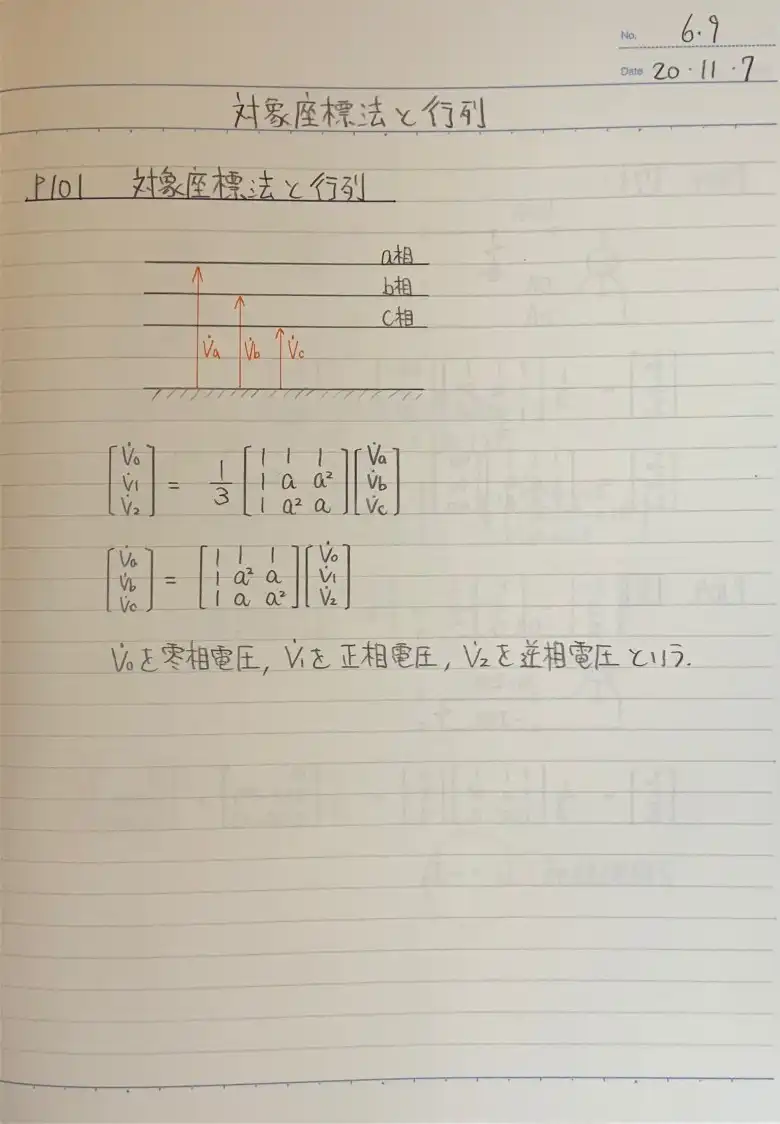 No. 6.9
Date 20・11・7
対象座標法と行列
P101 対象座標法と行列
a相
b相
c相
V̇a V̇b V̇c
[V̇0 V̇1 V̇2] = 1/3 [1 1 1; 1 a a²; 1 a² a] [V̇a V̇b V̇c]
[V̇a V̇b V̇c] = [1 1 1; 1 a² a; 1 a a²] [V̇0 V̇1 V̇2]
V̇0を零相電圧, V̇1を正相電圧, V̇2を逆相電圧という.